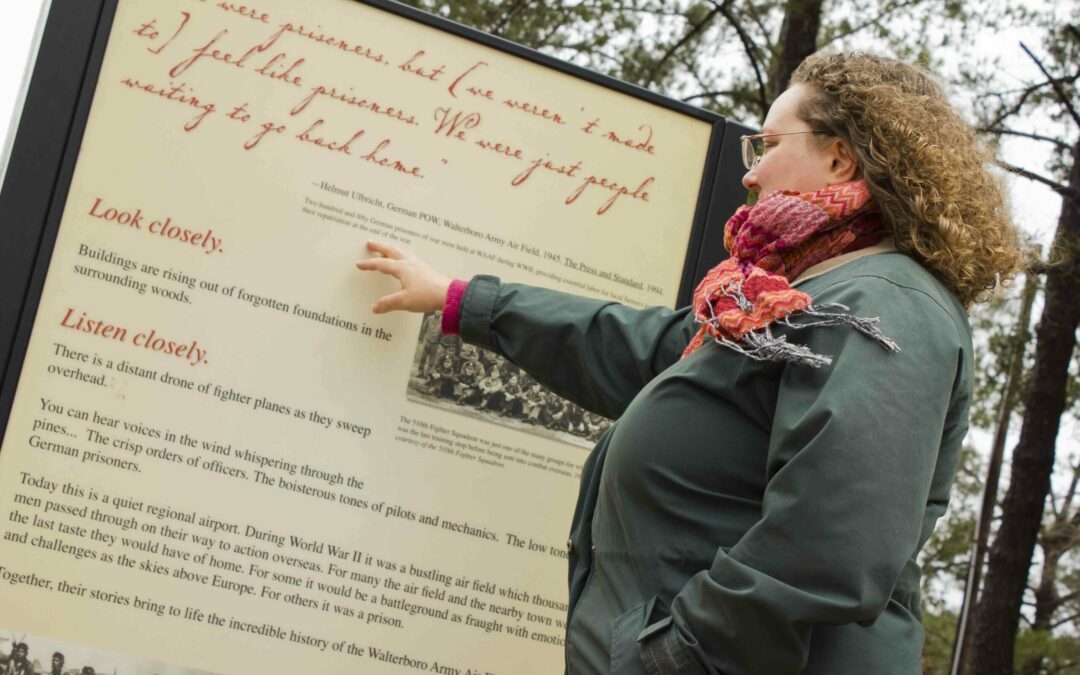 were prisoners, but [we weren't made
to] feel like prisoners. We were just people
waiting to go back home."
—Helmut Ulbricht, German POW, Walterboro Army Air Field, 1945. The Press and Standard, 1994.
Two hundred and fifty German prisoners of war were held at WAAF during WWII, providing essential labor for local farmers
their repatriation at the end of the war.
Look closely.
Buildings are rising out of forgotten foundations in the
surrounding woods.
Listen closely.
There is a distant drone of fighter planes as they sweep
overhead.
The 510th Fighter Squadron was just one of the many groups for
was the last training stop before being sent into combat overseas.
courtesy of the 510th Fighter Squadron.
You can hear voices in the wind whispering through the
pines... The crisp orders of officers. The boisterous tones of pilots and mechanics. The low
German prisoners.
Today this is a quiet regional airport. During World War II it was a bustling air field which
men passed through on their way to action overseas. For many the air field and the nearby town
the last taste they would have of home. For some it would be a battleground as fraught with
and challenges as the skies above Europe. For others it was a prison.
Together, their stories bring to life the incredible history of the Walterboro Army